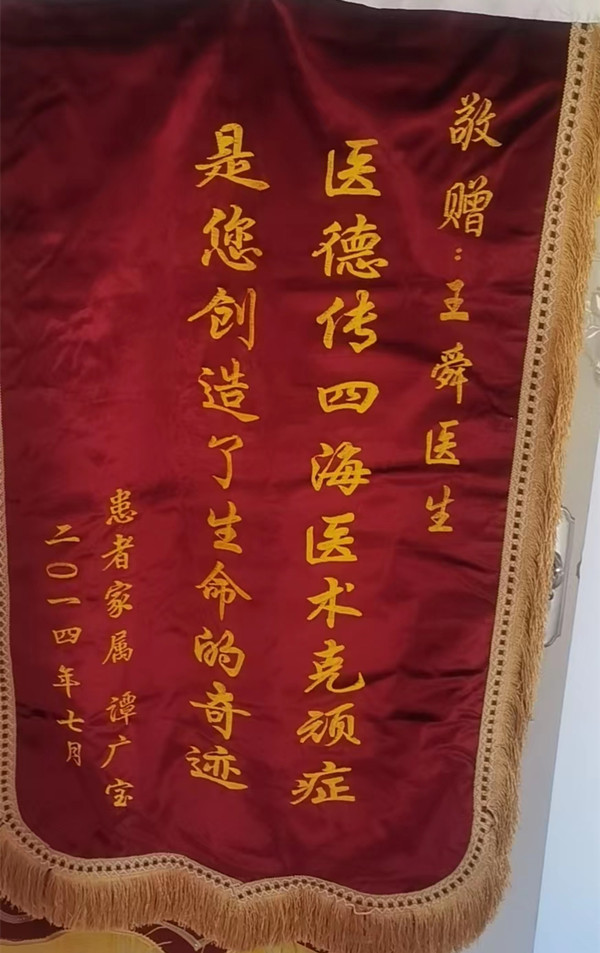 敬赠：王舜医生
医德传四海医术克顽症
是您创造了生命的奇迹
患者家属 谭广宝
二〇一四年七月